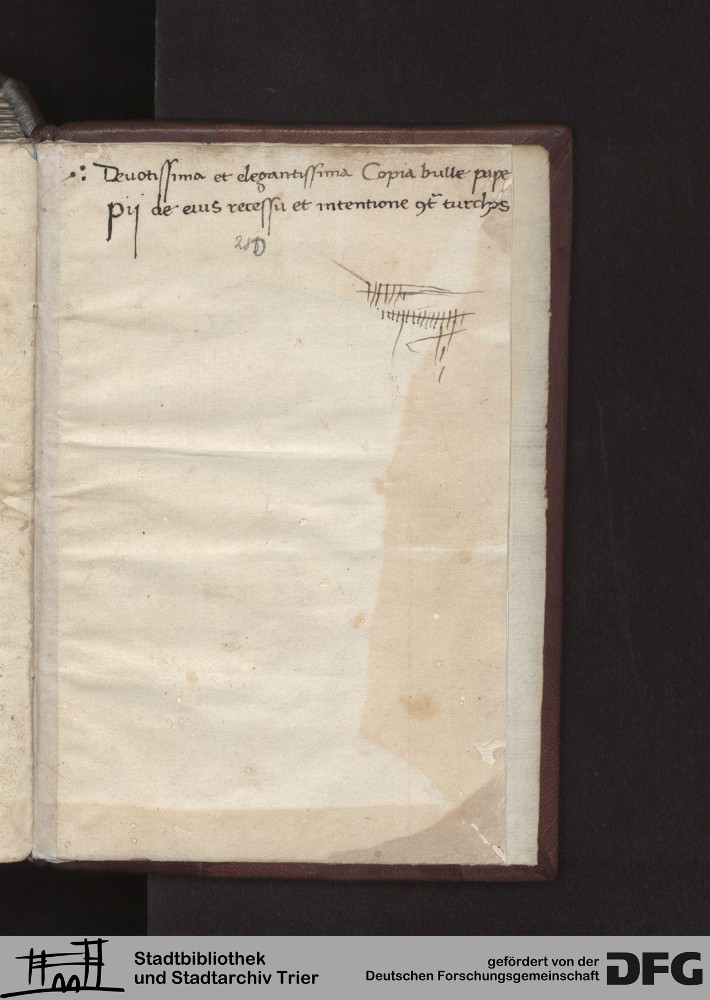 Deuotissima et elegantissima Copia bulle pape
pij de eius recessu et intentione 9t̃ turchos
Stadtbibliothek
und Stadtarchiv Trier
gefördert von der
Deutschen Forschungsgemeinschaft
DFG